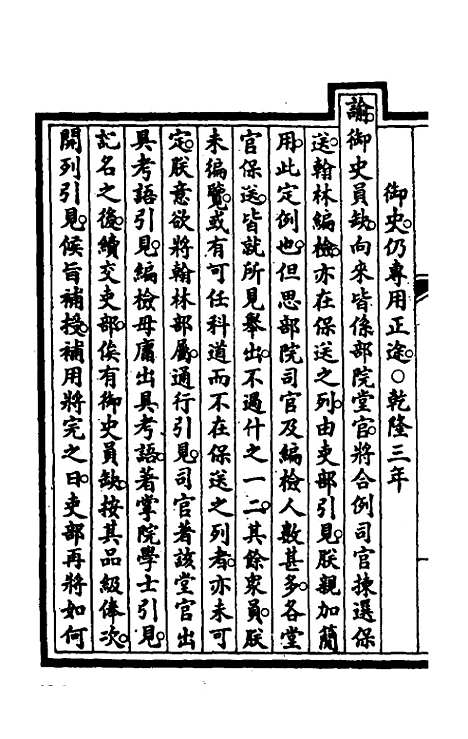 御史仍專用正途○乾隆三年
諭御史員缺向來皆係部院堂官將合例司官揀選保
送翰林編檢亦在保送之列由吏部引見朕親加簡
用此定例也但思部院司官及編檢人數甚多各堂
官保送皆就所見舉出不過什之一二其餘衆員朕
未徧覽或有可任科道而不在保送之列者亦未可
定朕意欲將翰林部屬通行引見司官著該堂官出
具考語引見編檢毋庸出具考語著掌院學士引見
記名之後續交吏部俟有御史員缺按其品級俸次
開列引見候旨補授補用將完之日吏部再將如何